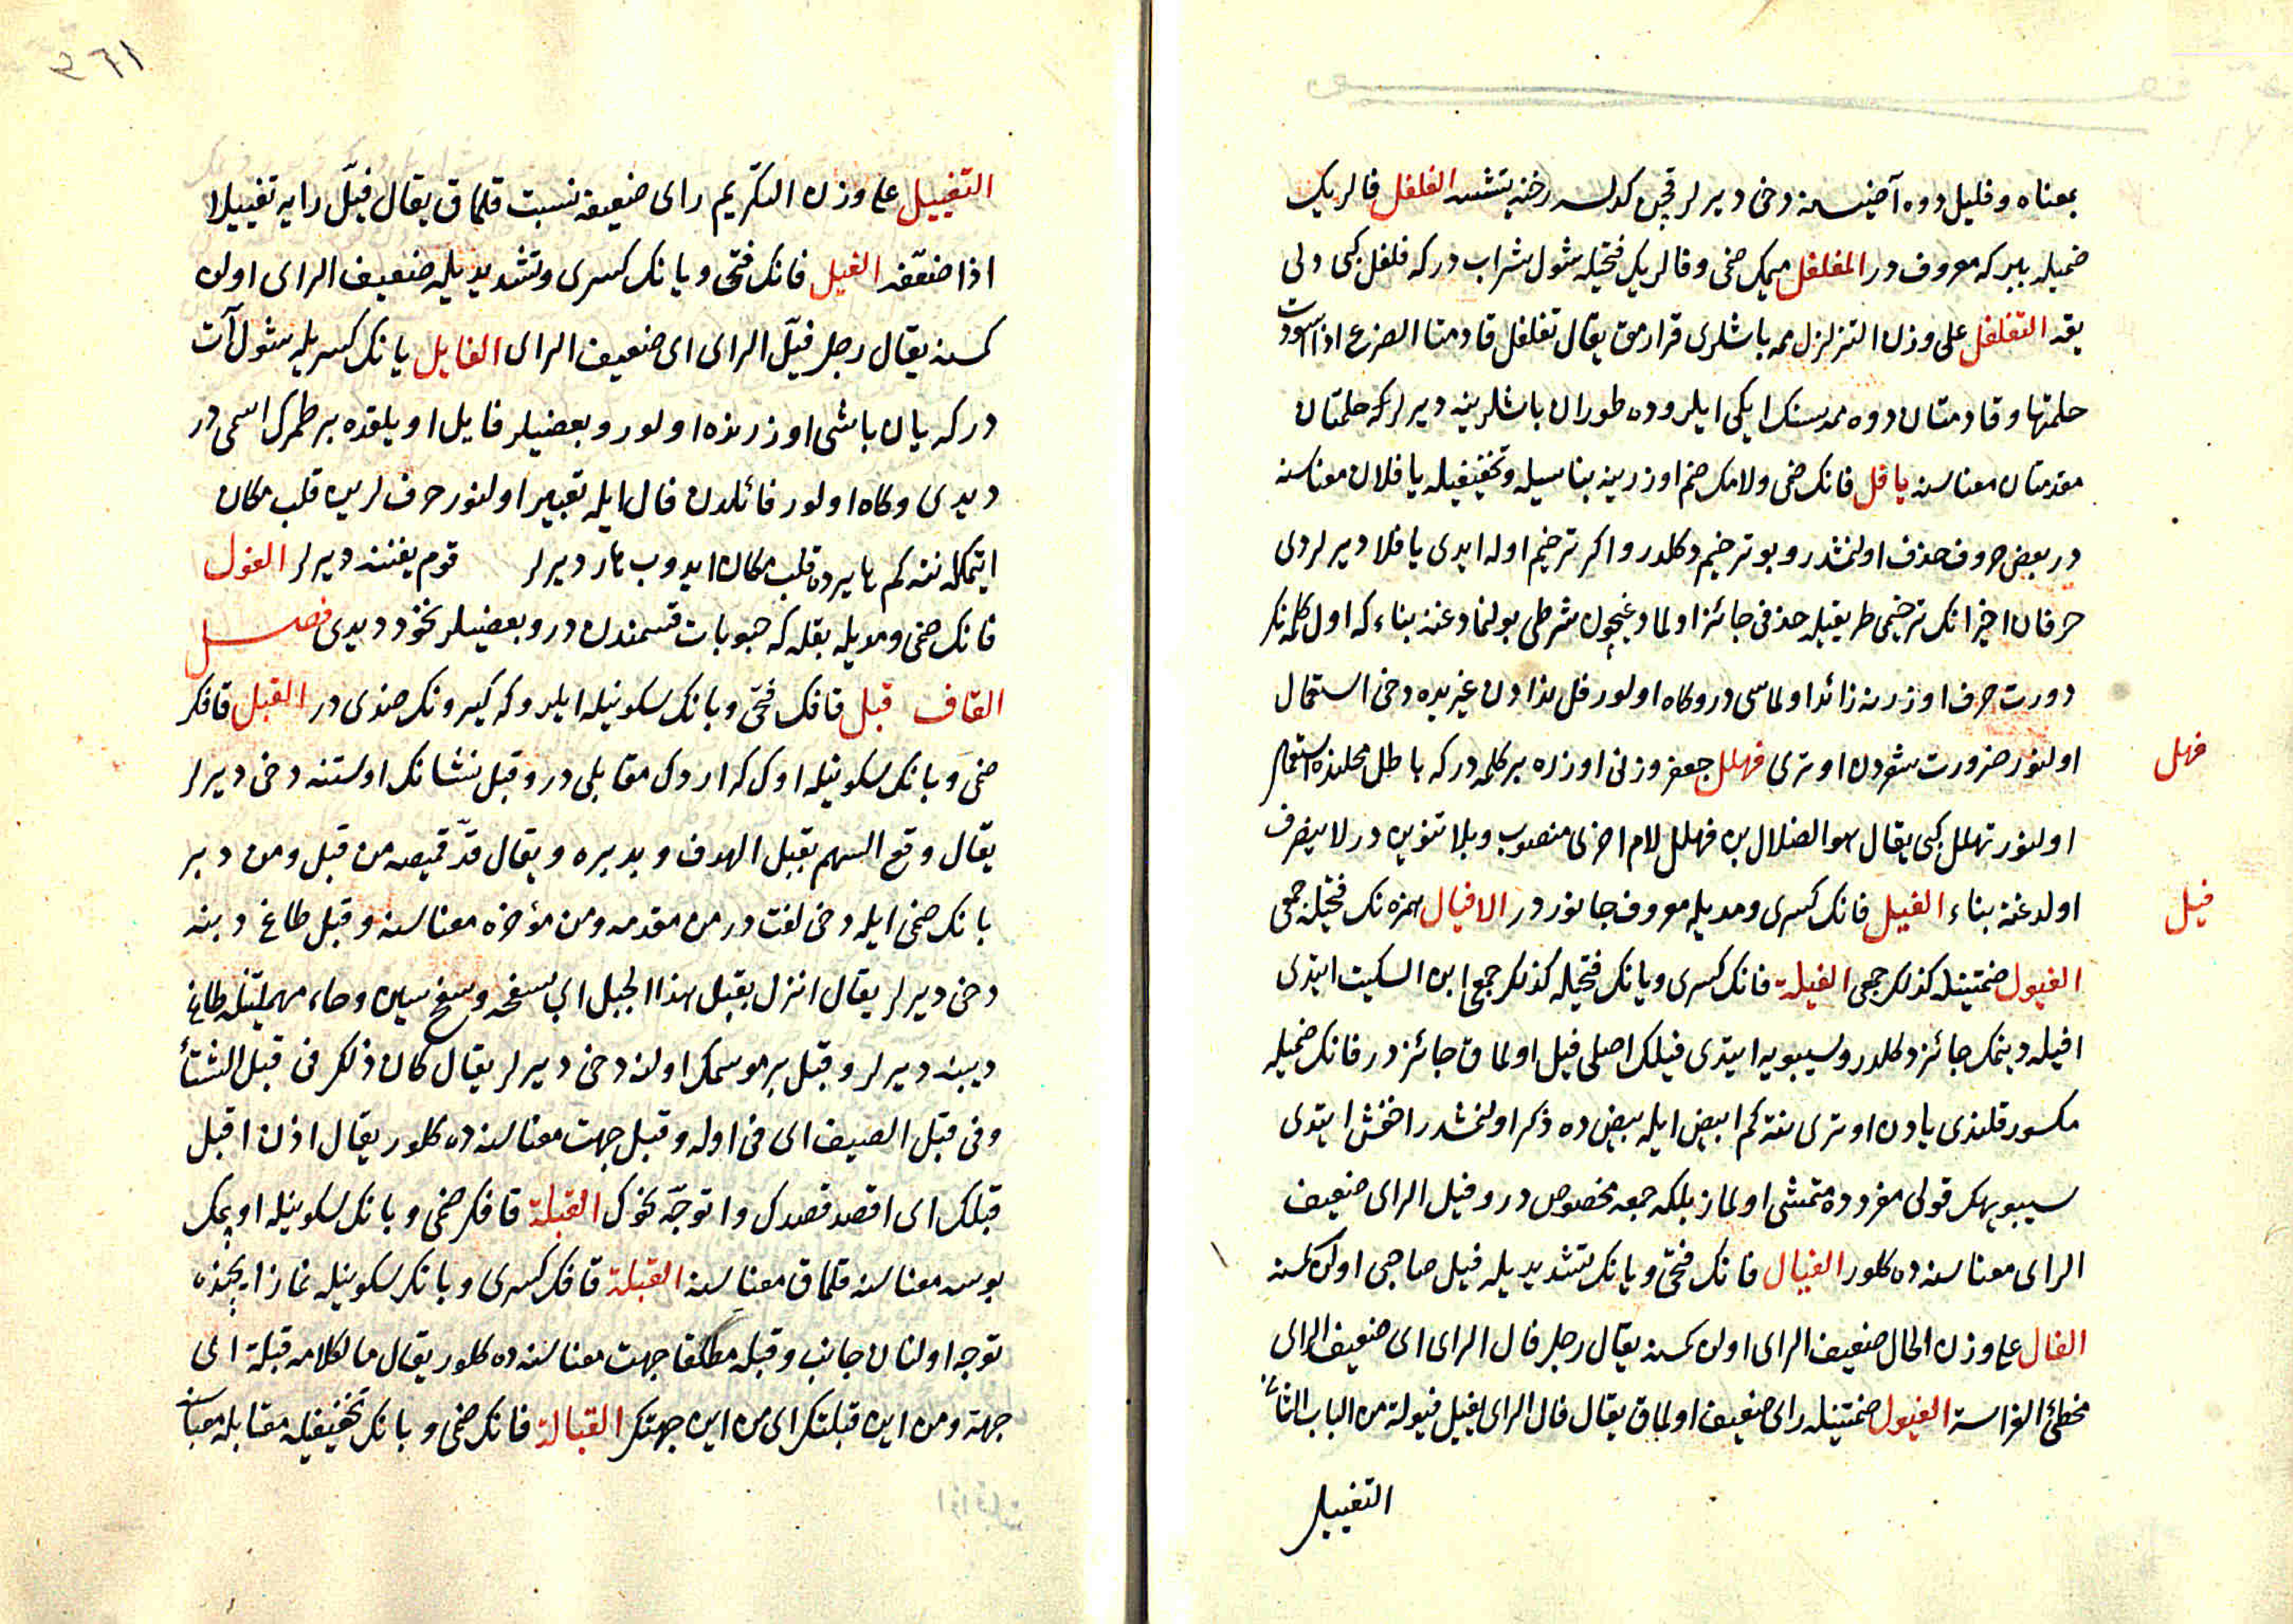 بمعناه و فليل دوه آضینسنه دخی دیرلر قچن کولسه رخنه یتشسه الفلفل فالریک
ضمیله ببر که معروف در المفلفل میمک ضمی و فالریک فتحیله شول شراب در که فلفل کبی دلی
یقه التفلفل علی وزن التزلزل ممه باشلری قرارمق یقال تفلفل قادمتا الضرع اذا اسودت
حلمتاها و قادمتان دوه ممه سنک ایکی ایلروده طوران باشلرینه دیرلر که حلمتان
مقدمتان معناسنه یا فل فانک ضمی و لامک ضم اوزرینه بناسیله و تخفیفیله یا فلان معناسنه
در بعض حروف حذف اولنمشدر و بو ترخیم دکلدر و اکر ترخیم اوله ایدی یا فلا دیرلردی
حرفان اخیرانک ترخیمی طریقیله حذفی جائز اولمادوغیچون شرطی بولنمادوغنه بناء که اول کلمه نک
دورت حرف اوزرنه زائد اولماسی در و کاه اولور فل ندادن غیریده دخی استعمال
اولنور ضرورت شعردن اوتری فهلل جعفر وزنی اوزره بر کلمه در که باطل محلنده استعمال
فهل
اولنور تهلل کبی یقال هو الضلال بن فهلل لام اخری منصوب و بلا تنوین در لا ینصرف
اولدوغنه بناء الفیل فانک کسری و مدیله معروف جانور در الافیال همزه نک فتحیله جمعی
فیل
الفیول ضمتینله کذلک جمعی الفیلة فانک کسری و یانک فتحیله کذلک جمعی ابن السکیت ایتدی
افیله دیمک جائز دکلدر و سیبویه ایتدی فیلک اصلی فیل اولماق جائز در فانک ضمیله
مکسور قلندی یادن اوتری نته کم ابیض ایله بیض ده ذکر اولنمشدر اخفش ایتدی
سیبویهک قولی مفردده متمشی اولماز بلکه جمعه مخصوص در و فیل الرای ضعیف
الرای معناسنه ده کلور الفیال فانک فتحی و یانک تشدیدیله فیل صاحبی اولن کمسنه
الفال علی وزن الحال ضعیف الرای اولن کمسنه یقال رجل فال الرای ای ضعیف الرای
مخطئ الفراسة الفیول ضمتینله رای ضعیف اولماق یقال فال الرای یفیل فیولة من الباب الثانی
التفییل
٣٦١
التفییل علی وزن التکریم رای ضعیفه نسبت قلماق یقال فیّل رایه تفییلا
اذا ضعّفه الفیل فانک فتحی و یانک کسری و تشدیدیله ضعیف الرای اولن
کمسنه یقال رجل فیّل الرای ای ضعیف الرای الفایل یانک کسریله شول ات
در که یان باشی اوزرنده اولور و بعضیلر فایل اویلقده بر طمرک اسمی در
دیدی و کاه اولور فائلدن فال ایله تعبیر اولنور حرفلرین قلب مکان
ایتمکله نته کم هایرده قلب مکان ایدوب هار دیرلر قوم یفنند دیرلر الفول
فانک ضمی و مدیله بقله که حبوبات قسمندن در و بعضیلر نخود دیدی فصل
القاف قبل قافک فتحی و بانک سکونیله ایلرو که کیرونک ضدی در القبل قافک
ضمی و بانک سکونیله اوک که اردک مقابلی در و قبل نشانک اوستنه دخی دیرلر
یقال وقع السهم بقبل الهدف و بدبره و یقال قدّ قمیصه من قبل و من دبر
بانک ضمی ایله دخی لغت در من مقدمه و من مؤخره معناسنه و قبل طاغ دبنه
دخی دیرلر یقال انزل بقبل هذا الجبل ای بسفحه و سفح سین و حاء مهملتینله طاغ
دیبنه دیرلر و قبل بر موسمک اولنه دخی دیرلر یقال کان ذلک فی قبل الشتاء
و فی قبل الصیف ای فی اوله و قبل جهت معناسنه ده کلور یقال اذن اقبل
قبلک ای اقصد قصدک و اتوجّه نحوک القبلة قافک ضمی و بانک سکونیله اوپمک
بوسه معناسنه قلماق معناسنه القبلة قافک کسری و بانک سکونیله نماز ایچنده
توجه اولنان جانب و قبله مطلقا جهت معناسنه ده کلور یقال ما لکلامه قبلة ای
جهة و من این قبلتک ای من این جهتک القبالة قافک ضمی و بانک تخفیفیله مقابله معناسنه